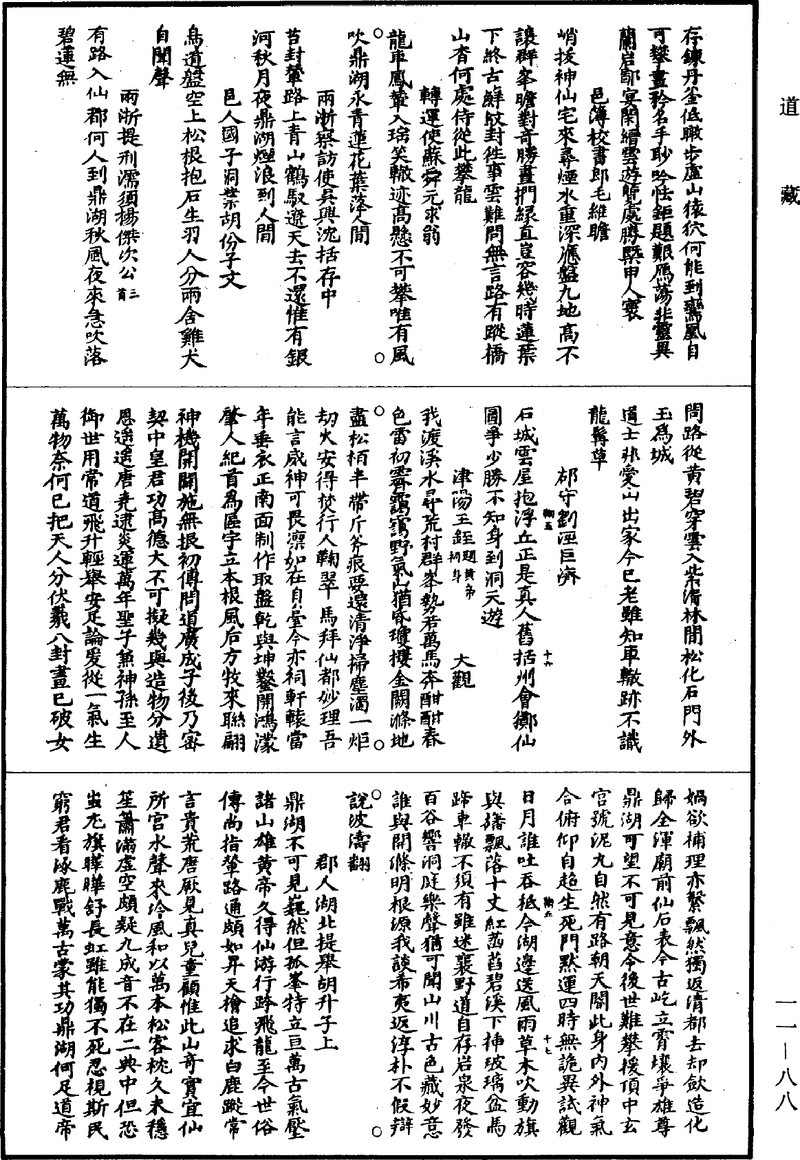 道藏
存鍊丹釜低瞰步虛山猿狖何能到鸞凰自
可攀畫矜名手耿吟恠鉅題艱鴈蕩非靈異
蘭岩鄙宴閑縉雲遊覽處勝槩甲人寰
邑簿校書郎毛維瞻
峭拔神仙宅來尋煙水重深應盤九地高不
讓群峯瞻對奇勝畫捫緣直豈容幾時蓮葉
下終古蘚紋封徃事雲難問無言路有蹤橋
山杳何處侍從此攀龍
轉運使蘇舜元求翁
龍車鳳輦入瑤笑轍迹高懸不可攀唯有風
吹鼎湖水青蓮花葉落人間
兩漸察訪使吳興沈括存中
苔封輦路上青山鶴馭遼天去不還惟有銀
河秋月夜鼎湖煙浪到人間
邑人國子洞業胡份子文
鳥道盤空上松根抱石生羽人分雨舍雞犬
自聞聲
兩漸提刑濡須楊傑次公三首
有路入仙都何人到鼎湖秋風夜來急吹落
碧蓮無
問路從黃碧穿雲入紫清林間松化石門外
玉為城
道士非愛山出家今已老雖知車轍跡不識
龍髯草
郡守劉涇巨濟
石城雲屋抱浮丘正是真人舊括州會鄉仙
圖爭少勝不知身到洞天遊
津陽王銍題黃帝祠身 大觀
我渡溪水尋荒村群峯勢若萬馬奔酣酣春
色雷初霽靄靄野氣山猶昏瓊樓金闕滌地
盡松栢半帶斤斧痕要遠清淨掃塵濁一炬
劫火安得焚行人鞠翠馬拜仙都妙理吾
能言威神可畏凜如在員壘今亦祠軒轅當
年垂衣正南面制作取盤乾與坤鑿開鴻濛
肇人紀首為區宇立本根風后方牧來聯翩
神機開闢施無垠初傅問道廣成子後乃密
契中皇君功高德大不可擬幾與造物分遺
恩遙遙唐堯逮炎運萬年聖子兼神孫至人
御世用常道飛升輕舉安足論爰從一氣生
萬物奈何已把天人分伏羲八卦畫已破女
媧欲補理亦繫飄然獨返清都去却斂造化
歸全渾廟前仙石表今古屹立霄壤爭雄尊
鼎湖可望不可見意令後世難攀援頂中玄
宮號泥丸自然有路朝天閽此身內外神氣
合俯仰自超生死門默運四時無詭異試觀
日月誰吐吞柢今湖邊送風雨草木吹動旗
與旛飄落十丈紅菡萏碧溪下揷玻璃盆馬
蹄車轍不須有雖迷襄野道自存岩泉夜發
百谷響洞庭樂聲猶可聞山川古色藏妙意
誰與開滌明根源我談希夷返淳朴不假辯
說波濤翻
郡人湖北提舉胡升子上
鼎湖不可見巍然但孤峯特立亘萬古氣壓
諸山雄黃帝久得仙游行跨飛龍至今世俗
傳尚指輦路通頗如昇天檜追求白鹿蹤常
言貴荒唐厥見真兒童顧惟此山奇實宜仙
所宮水聲來泠風和以萬本松客枕久未穩
笙蕭滿虛空頗疑九成音不在二典中但恐
蚩尤旗曄曄舒長虹雖能獨不死忍視斯民
窮君看涿鹿戰萬古蒙其功鼎湖何足道帝
一一—八八